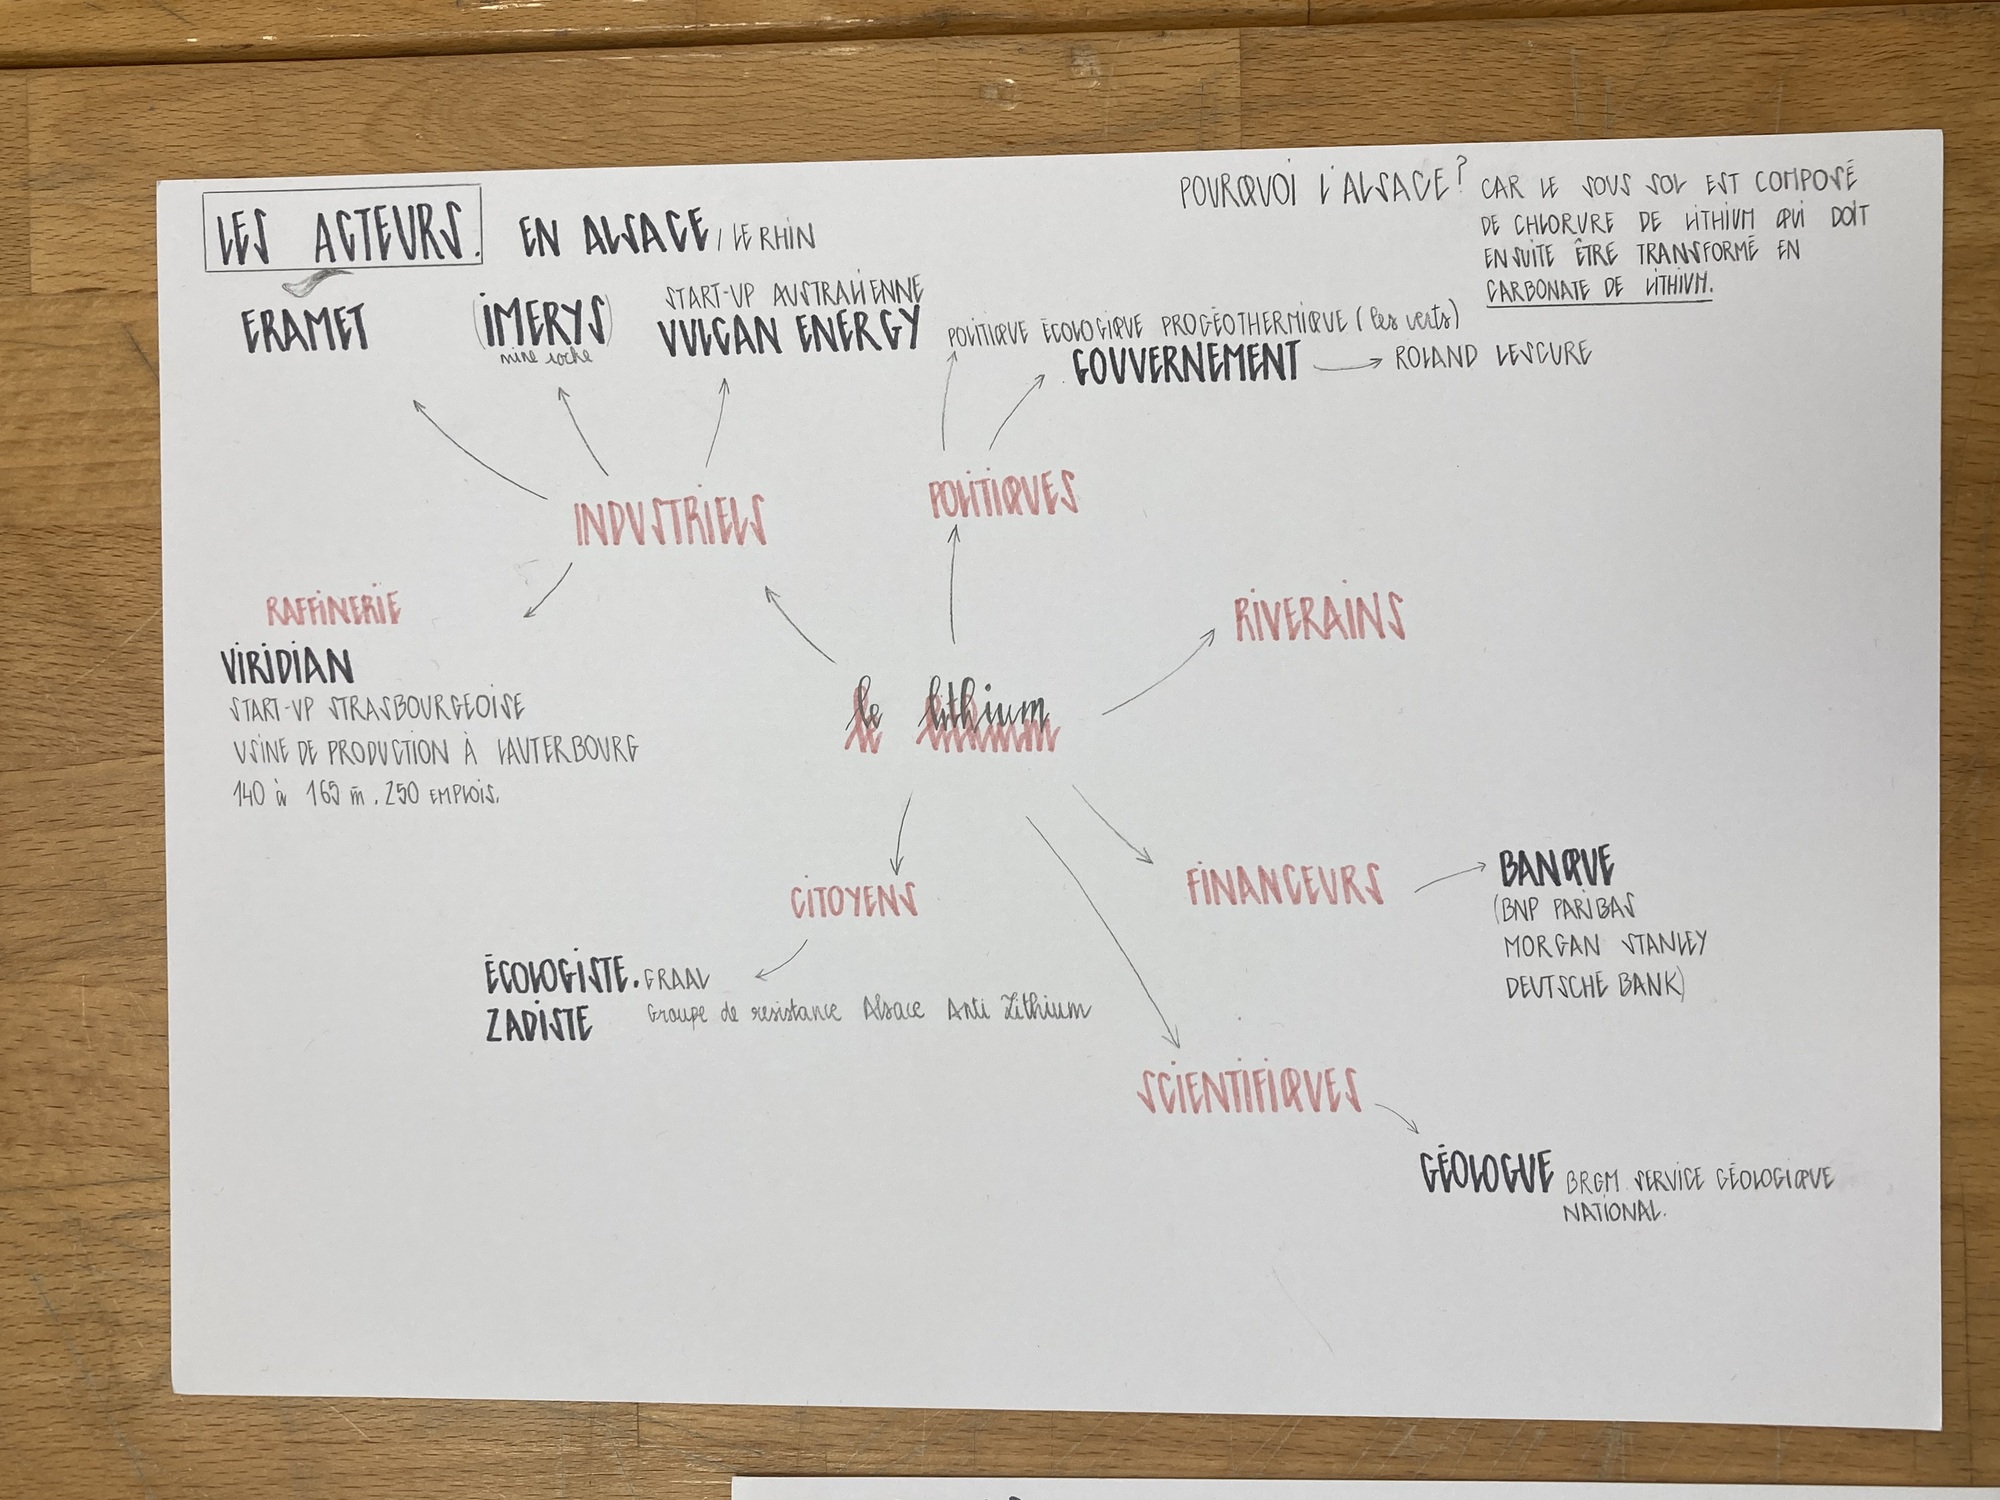 LES ACTEURS.
EN ALSACE / LE RHIN
POURQUOI L'ALSACE ?
CAR LE SOUS SOL EST COMPOSÉ
DE CHLORURE DE LITHIUM QUI DOIT
ENSUITE ÊTRE TRANSFORMÉ EN
CARBONATE DE LITHIUM.
ERAMET
(IMERYS)
mine roche
START-UP AUSTRALIENNE
VULCAN ENERGY
POLITIQUE ÉCOLOGIQUE PROGÉOTHERMIQUE (les verts)
GOUVERNEMENT
ROLAND LESCURE
INDUSTRIELS
POLITIQUES
RAFFINERIE
VIRIDIAN
START-UP STRASBOURGEOISE
USINE DE PRODUCTION À LAUTERBOURG
140 à 165 m. 250 EMPLOIS.
RIVERAINS
le lithium
CITOYENS
ÉCOLOGISTE. GRAAL
ZADISTE Groupe de resistance Alsace Anti Lithium
FINANCEURS
BANQUE
(BNP PARIBAS
MORGAN STANLEY
DEUTSCHE BANK)
SCIENTIFIQUES
GÉOLOGUE BRGM SERVICE GÉOLOGIQUE
NATIONAL.